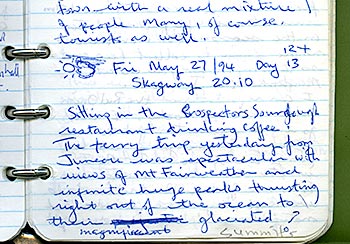 town with a real mixture
of people many, of course.
tourists as well.
12+
Fri May 27/94 Day 13
Skagway 20.10
Sitting in the Prospectors Sourdough
restaurant drinking coffee!
The ferry trip yesterday from
Juneau was spectacular with
views of Mt Fairweather and
infinite huge peaks thrusting
right out of the ocean to
their glaciated
magnificent summits